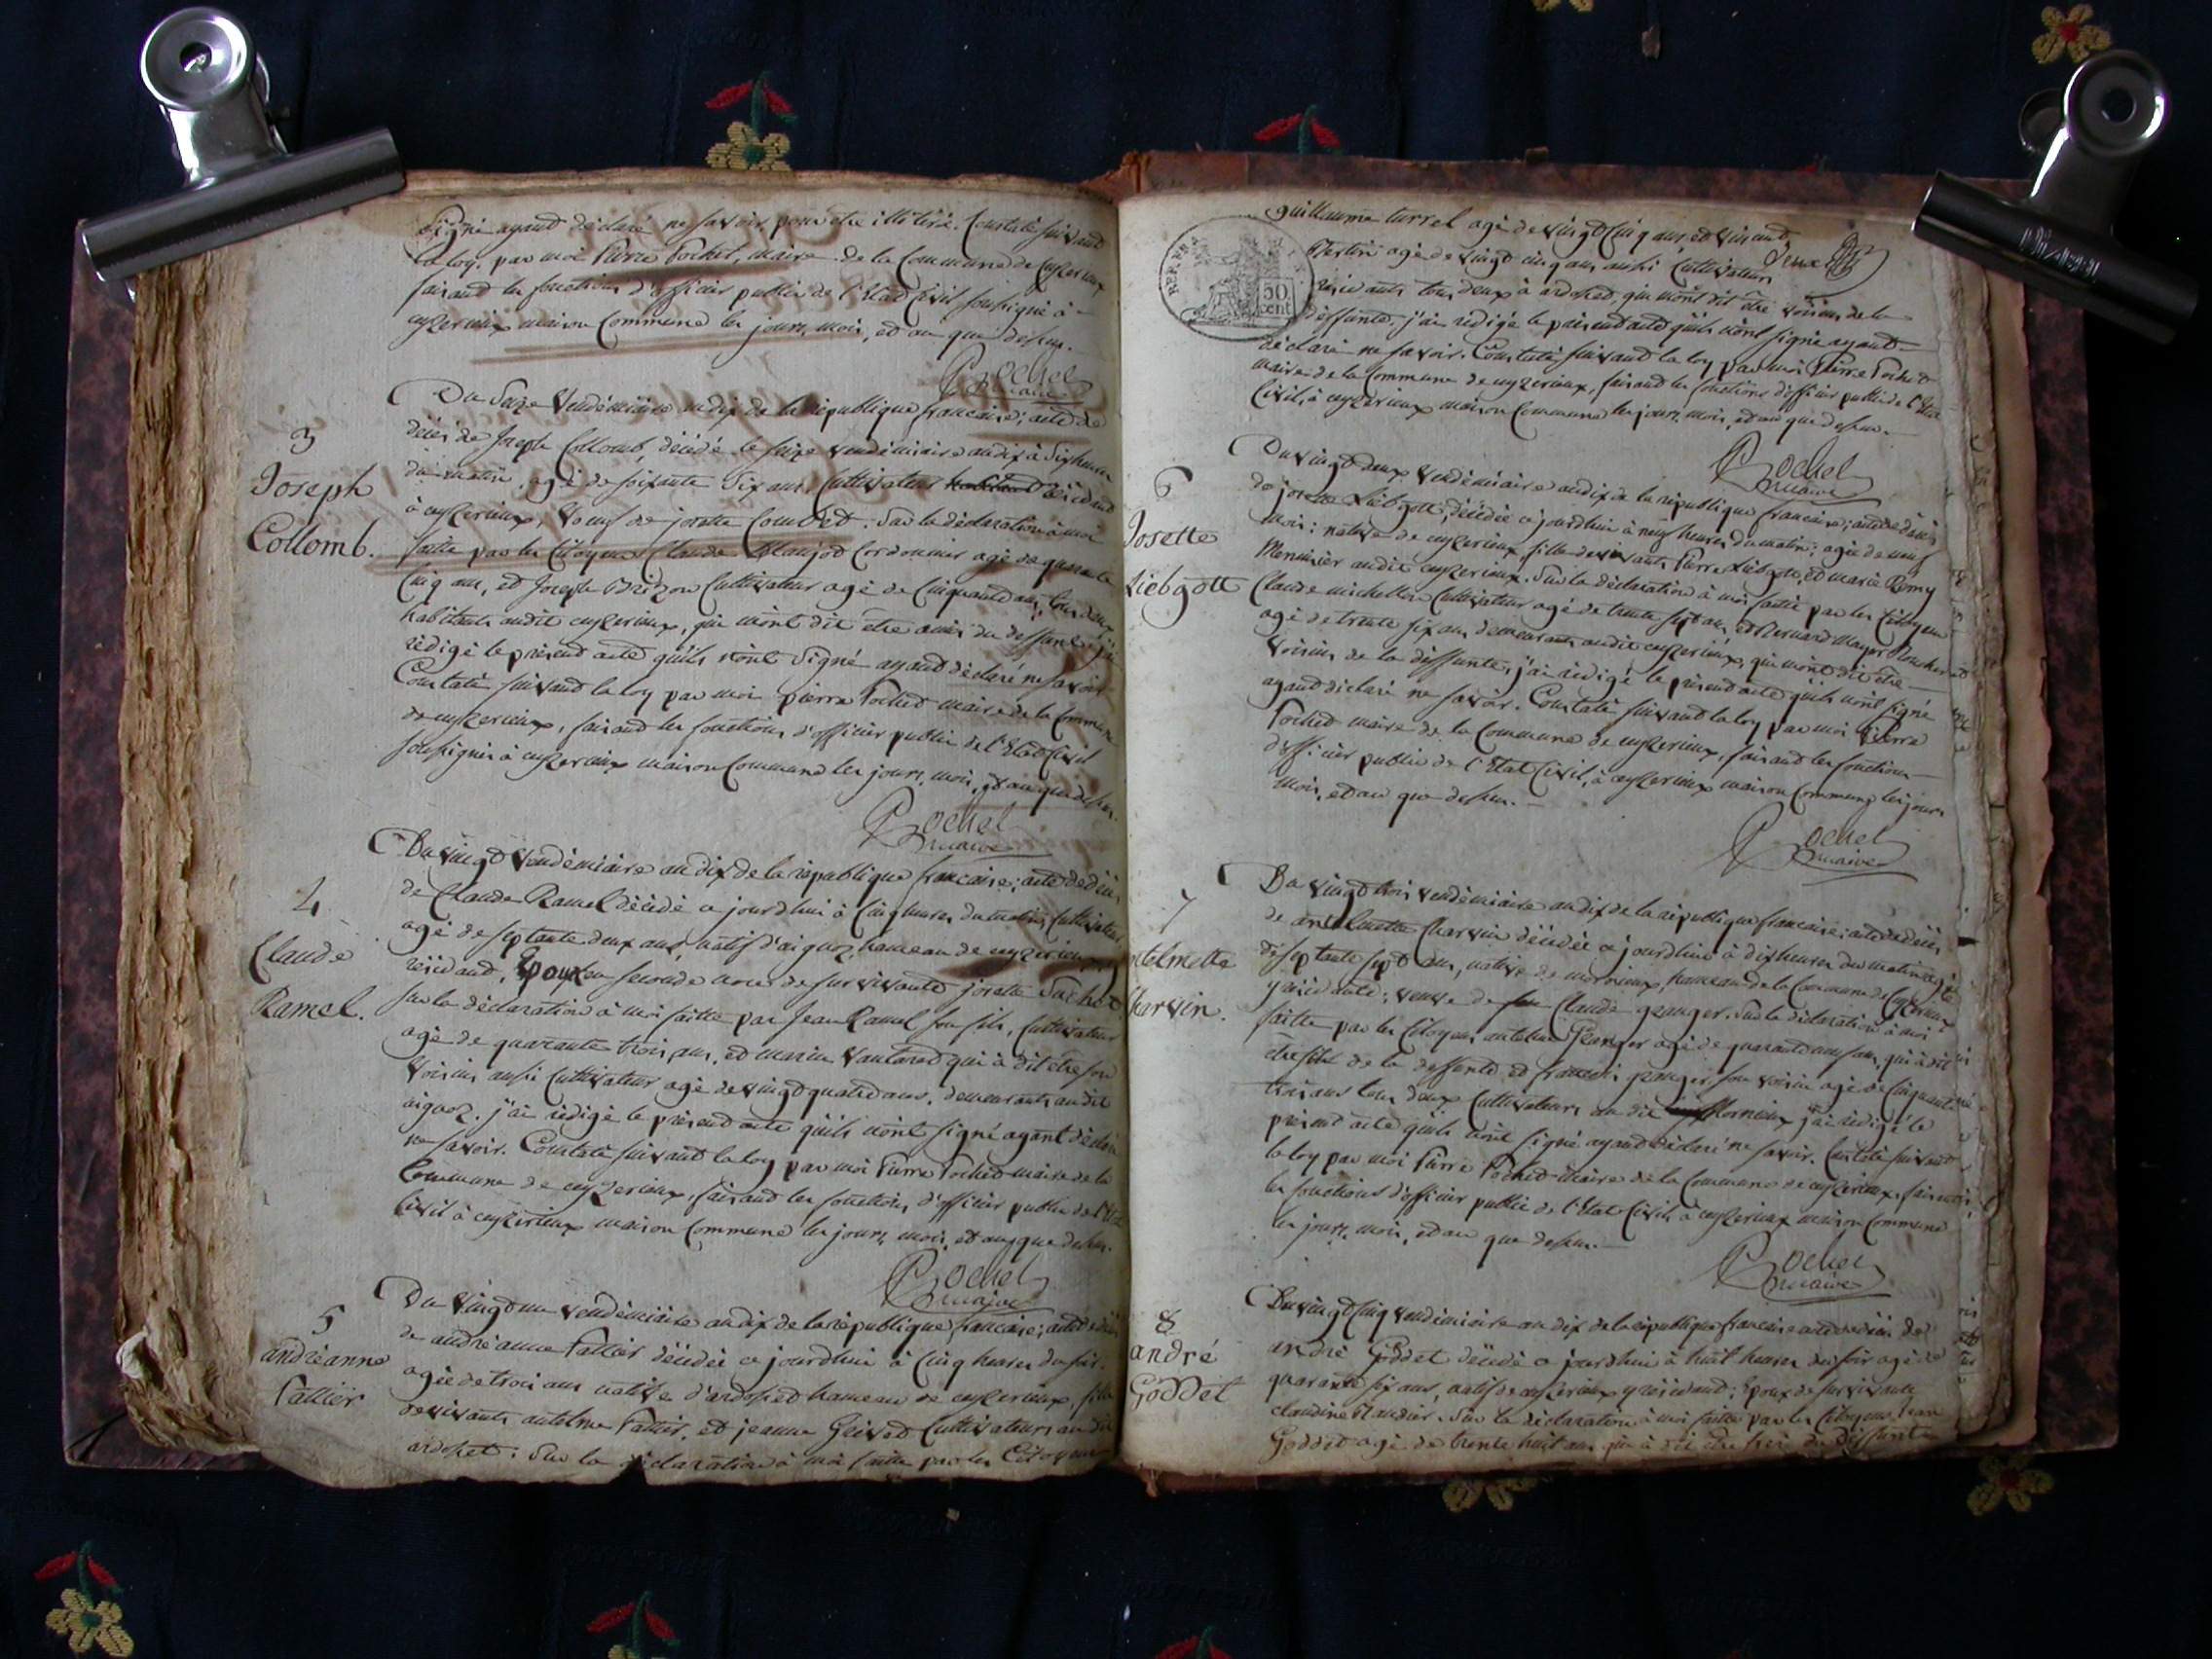 signé ayant déclaré ne savoir pour être illitéré. Constaté suivant
la loy, par moi Pierre Pochet, maire de la Commune de Ceyzerieux
faisant les fonctions d'officier public de l'Etat Civil soussigné à
ceyzerieux maison Commune les jours, mois, et an que dessus.
Pochet
maire
3
Joseph
Collomb.
Du Seize Vendémiaire an dix de la république française; acte de
décès de Joseph Collomb, décédé le seize vendémiaire an dix à six heures
du matin, agé de soixante six ans, Cultivateur habitant résidant
à ceyzerieux, Veuf de josette Combet. Sur la déclaration à moi
faitte par les Citoyens Claude Blanjot Cordonnier agé de quarante
Cinq ans, et Joseph Brizon Cultivateur agé de Cinquante ans, tous deux
habitants audit ceyzerieux, qui m'ont dit etre amis du deffunt, j'ai
rédigé le présent acte qu'ils n'ont Signé ayant déclaré ne savoir
Constaté suivant la loy par moi pierre Pochet maire de la Commune
de ceyzerieux, faisant les fonctions d'officier public de l'Etat Civil
soussigné à ceyzerieux maison Commune les jours, mois, et an que dessus.
Pochet
maire
4
Claude
Ramel.
Du vingt Vendémiaire an dix de la république française; acte de décès
de Claude Ramel décédé ce jourdhui à Cinq heures du matin, Cultivateur
agé de septante deux ans, natif d'aignoz, hameau de ceyzerieux y
résidant, Époux en seconde noces de survivante josette Sachet
sur la déclaration à moi faitte par Jean Ramel son fils, Cultivateur
agé de quarante trois ans, et marin Vautaret qui à dit être son
Voisin aussi Cultivateur agé de vingt quatre ans, demeurants au dit
aignoz. j'ai rédigé le présent acte qu'ils n'ont signé ayant déclaré
ne savoir. Constaté suivant la loy par moi Pierre Pochet maire de la
Commune de ceyzerieux, faisant les fonctions d'officier public de l'Etat
Civil à ceyzerieux maison Commune les jours, mois, et an que dessus.
Pochet
maire
5
andréanne
Fattier
Du Vingt un vendémiaire an dix de la république française; acte de décès
de andréanne Fattier décédée ce jourdhui à Cinq heures du soir.
agée de trois ans native d'ardosset hameau de ceyzerieux, fille
de vivants antelme Fattier, et jeanne Grivet Cultivateurs au dit
ardosset: Sur la déclaration à moi faitte par les Citoyens
guillaume turrel agé de vingt Cinq ans, et Vincent
deux
Bertin agé de vingt cinq ans aussi Cultivateurs
REP. FRA.
50
cent
résidants tous deux à ardosset, qui m'ont dit être voisins de la
deffunte; j'ai rédigé le présent acte qu'ils n'ont signé ayant
déclaré ne savoir. Constaté suivant la loy par moi Pierre Pochet
maire de la Commune de ceyzerieux, faisant les fonctions d'officier public de l'Etat
Civil, à ceyzerieux maison Commune les jours, mois, et an que dessus.
Pochet
maire
6
Josette
Liebgott
Du vingt deux Vendémiaire an dix de la république française; acte de décès
de josette Liebgott, décédée ce jourdhui à neuf heures du matin; agée de neuf
mois: native de ceyzerieux fille de vivants Pierre Liebgott, et marie Romy
Menuisier audit ceyzerieux. Sur la déclaration à moi faitte par les Citoyens
Claude michellon Cultivateur agé de trente sept ans, et Bernard Mayor
agé de trente six ans demeurants audit ceyzerieux, qui m'ont dit etre
Voisins de la deffunte; j'ai rédigé le présent acte qu'ils n'ont signé
ayant déclaré ne savoir. Constaté suivant la loy par moi Pierre
Pochet maire de la Commune de ceyzerieux, faisant les fonctions
d'officier public de l'Etat Civil, à ceyzerieux maison Commune les jours
mois, et an que dessus.
Pochet
maire
7
ntelmette
Charvin.
Du vingt trois vendémiaire an dix de la république française; acte de décès
de antelmette Charvin décédée ce jourdhui à dix heures du matin agée
de septante sept ans, native de mornieux, hameau de la Commune de Ceyzerieux
y résidante; veuve de feu Claude granger. Sur la déclaration à moi
faitte par les Citoyens antelme Granger agé de quarante ans, qui à dit
etre fils de la deffunte et francois granger, son voisin agé de cinquante
trois ans tous deux Cultivateurs au dit Mornieux j'ai rédigé le
présent acte qu'ils n'ont signé ayant déclaré ne savoir. Constaté suivant
la loy par moi Pierre Pochet maire de la Commune de ceyzerieux, faisant
les fonctions d'officier public de l'Etat Civil, à ceyzerieux maison Commune
les jours, mois, et an que dessus.
Pochet
maire
8
andré
Goddet
Du vingt Cinq vendémiaire an dix de la république française acte de décès de
andré Goddet décédé ce jourdhui à huit heures du soir agé de
quarante six ans, natif de ceyzerieux y résidant; Époux de survivante
claudine Blandier. Sur la déclaration à moi faitte par les Citoyens Jean
Goddet agé de trente huit ans qui à dit etre frère du deffunt